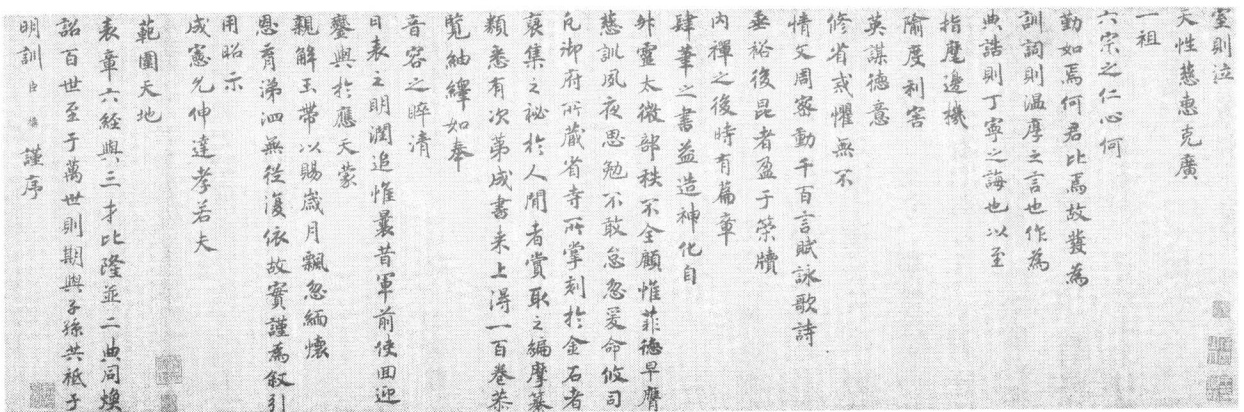 窒則泣
天性慈惠克廣
一祖
六宗之仁心何
勤如焉何君比焉故發為
訓詞則溫厚之言也作為
典誥則丁寧之誨也以至
指麾邊機
隃度利害
英謀德意
修省戒懼無不
情文周密動千百言賦詠歌詩
垂裕後昆者盈于榮牘
內禪之後時有篇章
肆筆之書益造神化自
外靈太微部秩不全顧惟菲德早膺
慈訓夙夜思勉不敢怠忽爰命攸司
凡御府所藏省寺所掌刻於金石者
裒集之秘於人間者賞取之編摩纂
類悉有次第成書來上得一百卷恭
覽紬繹如奉
音容之睟清
日表之明潤追惟曩昔軍前使回迎
鑾輿於應天蒙
親解玉帶以賜歲月飄忽緬懷
恩育涕泗無從復依故實謹為敘引
用昭示
成憲允伸達孝若夫
範圍天地
表章六經與三才比隆並二典同煥
詔百世至于萬世則期與子孫共祗于
明訓臣 謹序